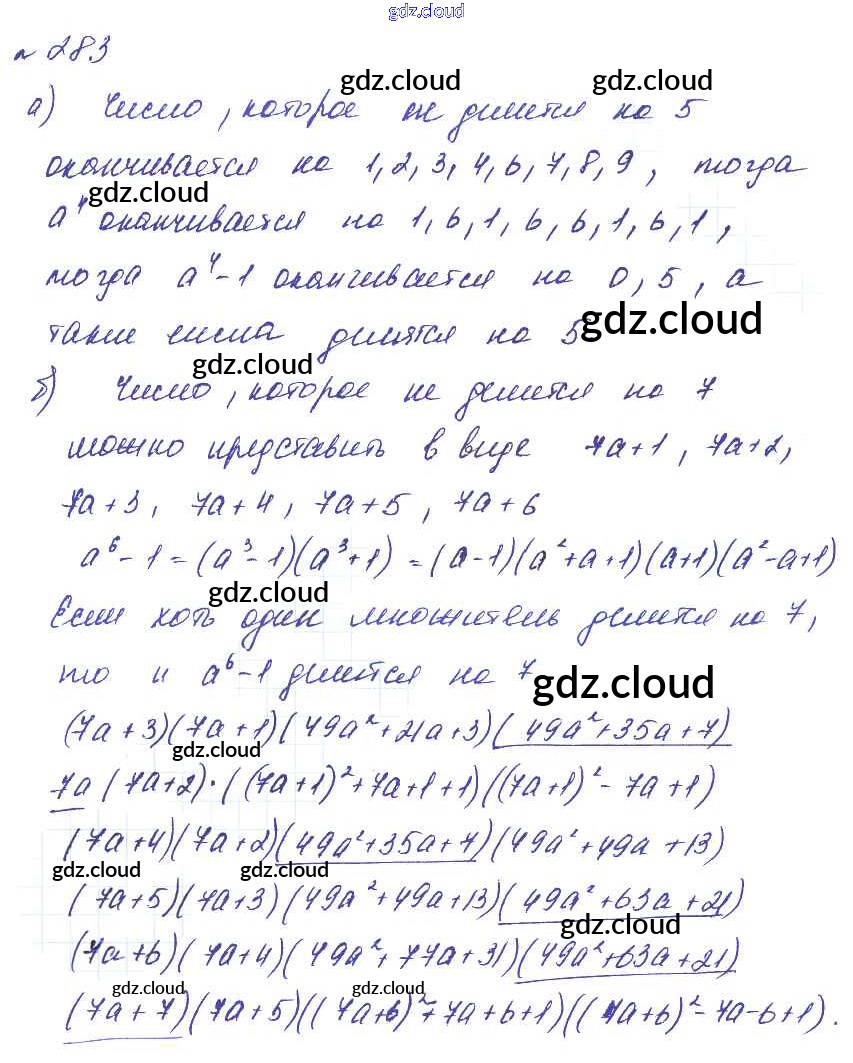 gdz.cloud
№ 283
gdz.cloud gdz.cloud
а) Число, которое не делится на 5
оканчивается на 1, 2, 3, 4, 6, 7, 8, 9, тогда
gdz.cloud
a⁴ оканчивается на 1, 6, 1, 6, 6, 1, 6, 1,
тогда a⁴-1 оканчивается на 0, 5, а
такие числа делятся на 5
gdz.cloud
gdz.cloud
б) Число, которое не делится на 7
можно представить в виде 7a+1, 7a+2,
7a+3, 7a+4, 7a+5, 7a+6
a⁶-1=(a³-1)(a³+1)=(a-1)(a²+a+1)(a+1)(a²-a+1)
gdz.cloud
Если хоть один множитель делится на 7,
то и a⁶-1 делится на 7
gdz.cloud
(7a+3)(7a+1)(49a²+21a+3)(49a²+35a+7)
gdz.cloud
7a(7a+2)·((7a+1)²+7a+1+1)((7a+1)²-7a+1)
(7a+4)(7a+2)(49a²+35a+7)(49a²+49a+13)
gdz.cloud gdz.cloud gdz.cloud
(7a+5)(7a+3)(49a²+49a+13)(49a²+63a+21)
gdz.cloud
(7a+6)(7a+4)(49a²+77a+31)(49a²+63a+21)
gdz.cloud gdz.cloud
(7a+7)(7a+5)((7a+6)²+7a+6+1)((7a+6)²-7a-6+1).